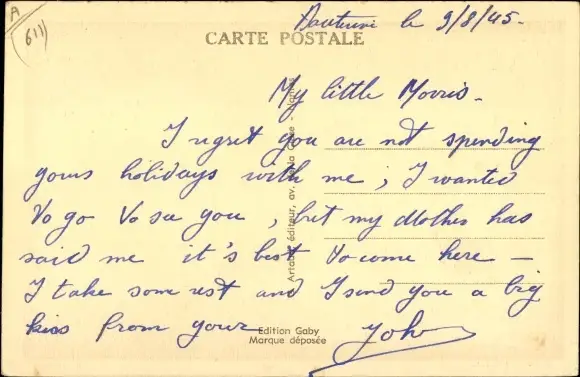 A
611
le 9/8/45.
CARTE POSTALE
My little Morris.
I regret you are not spending
yours holidays with me, I wanted
to go to see you, but my Mother has
said me it's best to come here —
I take some rest and I send you a big
kiss from your John
Edition Gaby
Marque déposée
Artaud éditeur, av. de la Close - Nantes